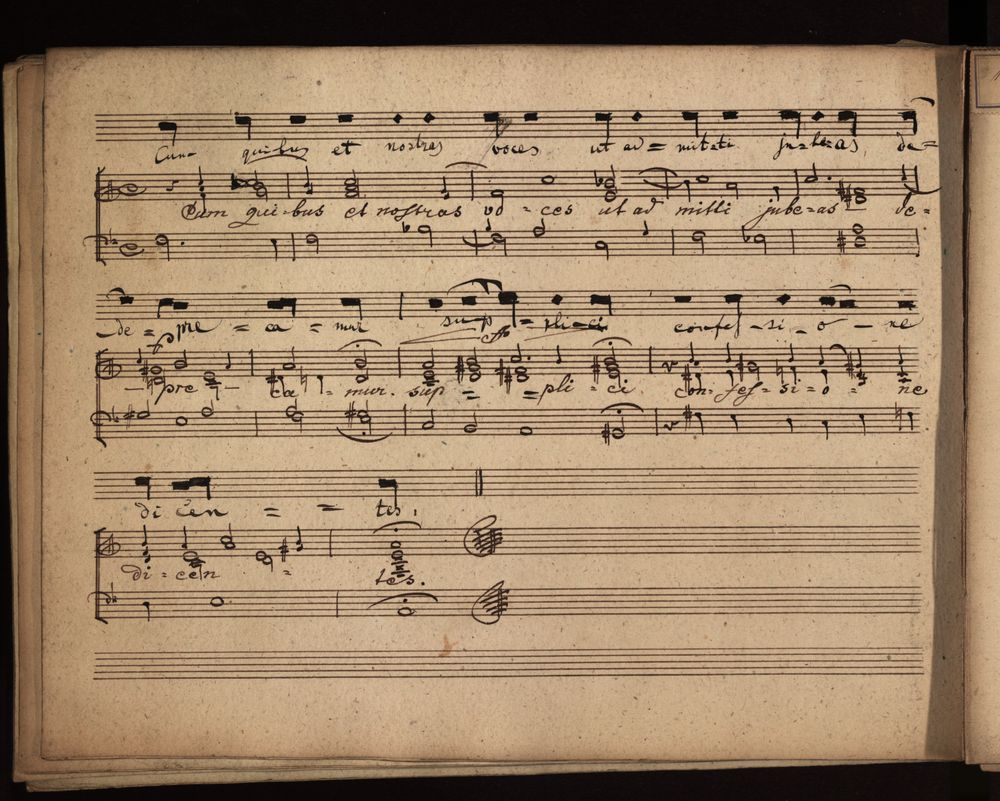 Cum quibus et nostras voces ut ad = mitti jubeas de =
Cum qui-bus et nostras vo = ces ut ad mitti jube=as de=
de = pre = ca = mur sup = pli-ci confes - si - o - ne
- pre - ca = mur. sup = = pli = ci con= fes = si = o = ne
di cen = = tes.
di = cen = tes.